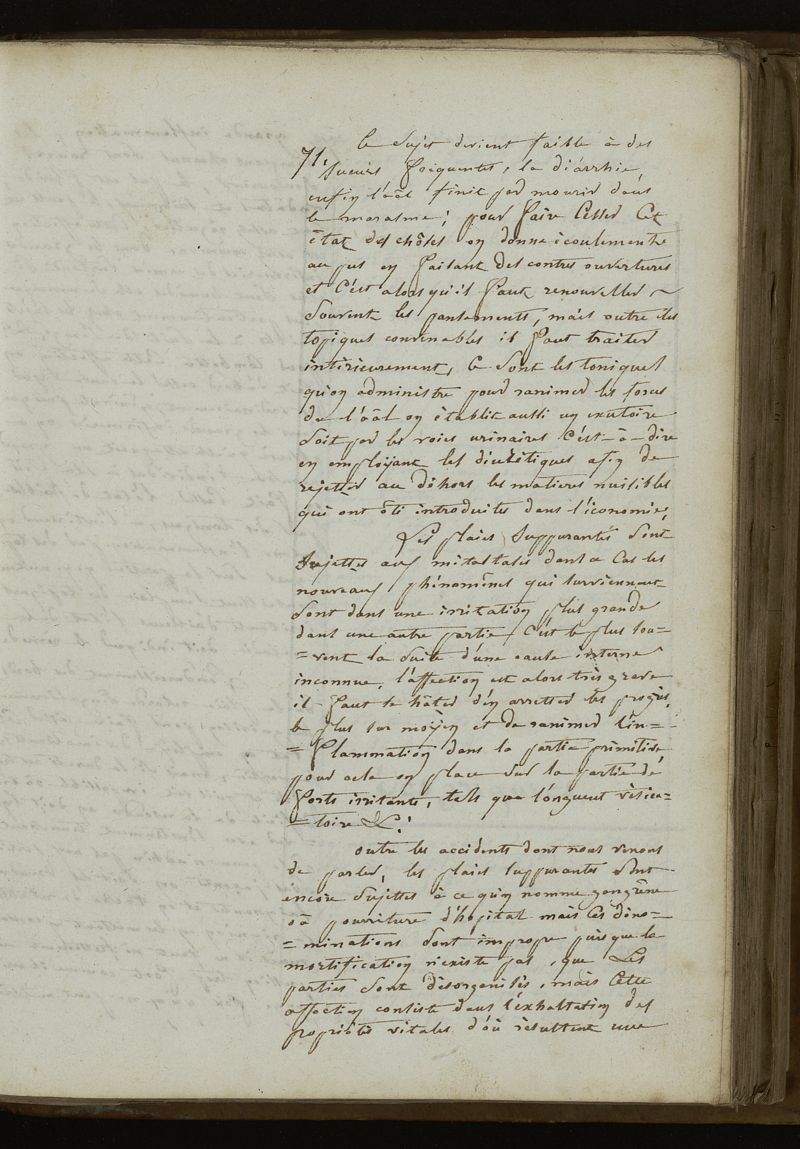 71.
le sujet devient faible à des
sueurs fréquentes, la diárrhie,
enfin l'aãl finit par mourir dans
le marasme; pour faire cesser cet
état des chôses on donne écoulemente
au pus en faisant des contres ouvertures
et c'est alors qu'il faut renouveller ~
souvent les pansements, mais outre des
topiques convenables il faut traiter
intérieurement, ce sont les toniques
qu'on administre pour ranimer les forces
de l'aãl on établit aussi un exutoire
soit par les voies urinaires c'est-à-dire
en employant les diurétiques afin de
rejetter au déhors les matieres nuisibles
qui ont été introduites dans l'économie,
Les plaies suppurantés sont
sujettes aux métastases dans ce cas les
nouveaux phénomènes qui surviennent
sont dans une irritation plus grande
dans une autre partie, c'est le plus sou=
=vent la suite d'une cause interne
inconnue, l'affection est alors très grave
il faut se hâter d'en arretter les progrès,
le plus sur moyen et de ranimer l'in=
=flammation dans la partie primitive
pour cela on place sur la partie de
forts irritants, tels que l'onguent vésica=
=toire &.!
outre les accidents dont nous venons
de parler, les plaies suppurantes sont
encore sujettes à ce qu'on nomme gangrène
où pourriture d'hôpital mais ces déno=
=minations sont impropre puisque la
mortification n'existe pas, que les
parties sont désorganisés, mais cette
affection consiste dans l'exhaltation des
propriétés vitales d'où résultent une